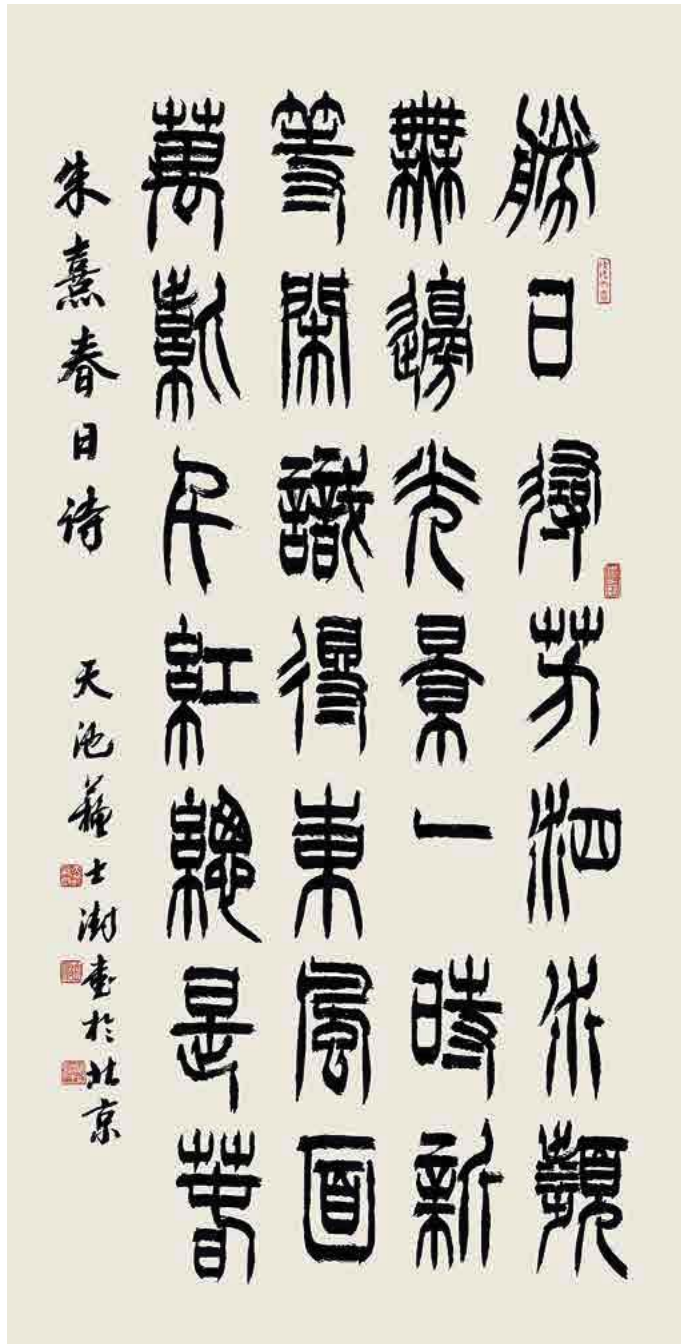 勝日尋芳泗水瀕
無邊光景一時新
等閑識得東風面
萬紫千紅總是春
朱熹春日詩 天池蘇士澍書於北京